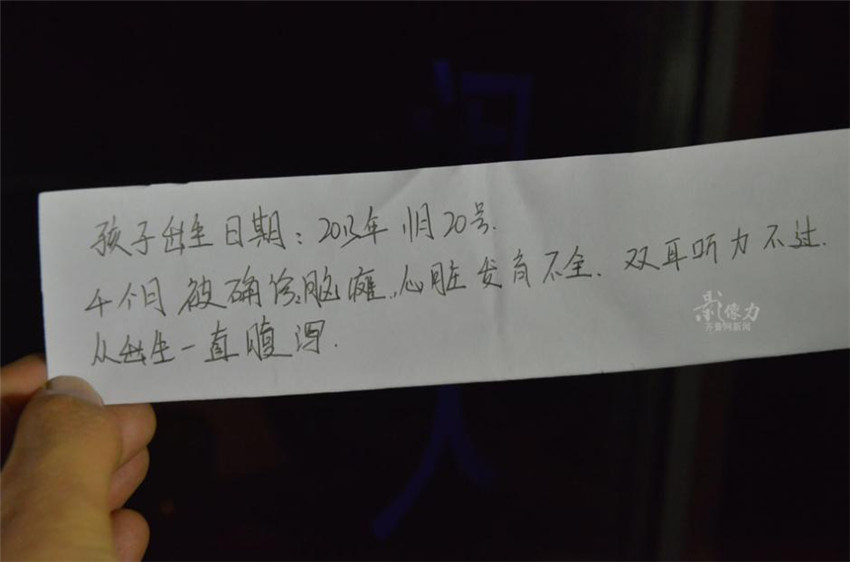 孩子出生日期：2013年11月20号.
4个月被确诊脑瘫,心脏发育不全.双耳听力不过.
从出生一直腹泻.
影像力
齐鲁网新闻